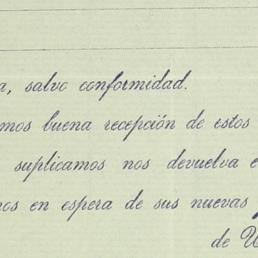 a, salvo conformidad.
mos buena recepción de estos
suplicamos nos devuelva e
nos en espera de sus nuevas
de U